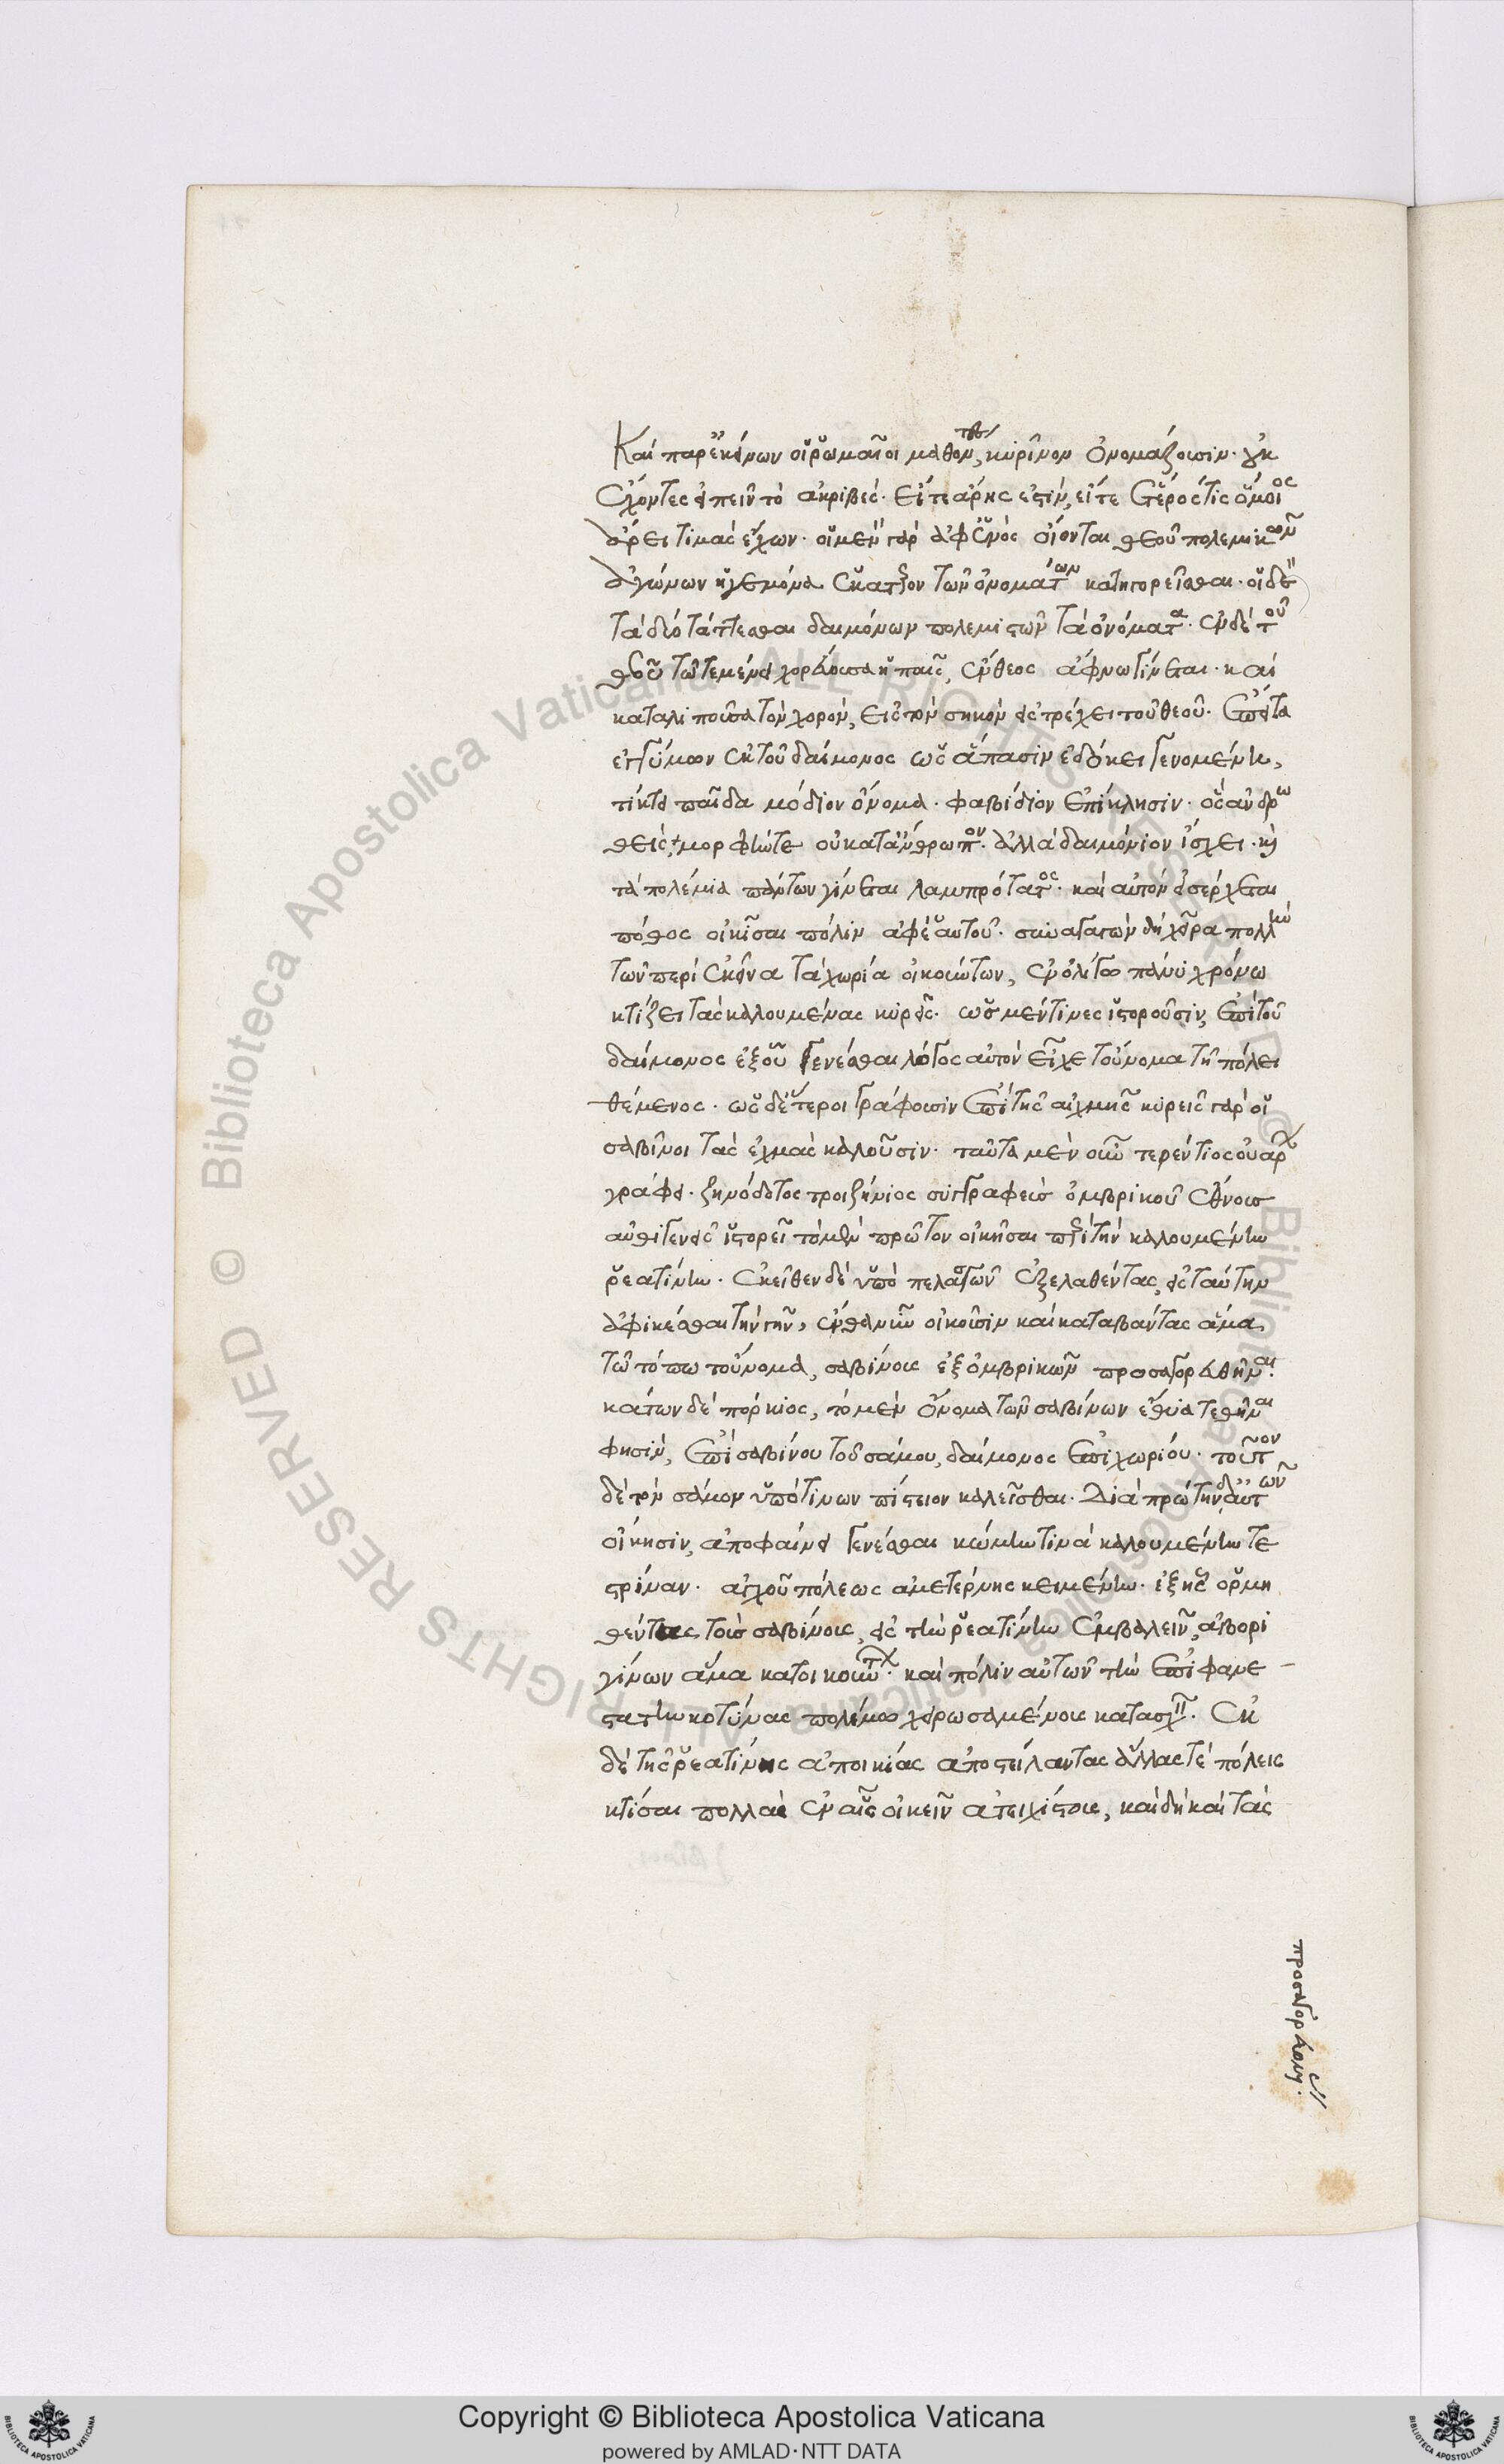 Καὶ παρ' ἐκείνων οἱ ῥωμαῖοι μαθόντες, κυρῖνον ὀνομάζουσιν. οὐκ
ἔχοντες εἰπεῖν τὸ ἀκριβές. εἴτε ἄρης ἐστίν, εἴτε ἕτερός τις ὁμοίος
ἄρει τιμὰς ἔχων. οἱ μὲν γὰρ ἀφ' ἑνὸς οἴονται θεοῦ πολεμικῶν
ἀγώνων ἡγεμόνα ἑκάτερον τῶν ὀνομάτων κατηγορεῖσθαι. οἱ δὲ
τὰ δύο τάττεσθαι δαιμόνων πολεμιστῶν τὰ ὀνόματα. ἐν δὲ τοῦ
θεοῦ τῶ τεμένει χορεύουσα ἡ παῖς, ἔνθεος ἄφνω γίνεται. καὶ
καταλιποῦσα τὸν χορόν, εἰς τὸν σηκὸν εἰστρέχει τοῦ θεοῦ. ἔπειτα
ἐγκύμων ἐκ τοῦ δαίμονος ὡς ἅπασιν ἐδόκει γενομένη,
τίκτει παῖδα μόδιον ὄνομα. φαβίδιον ἐπίκλησιν. ὃς ἀνδρω
θεὶς, μορφήν τε οὐ κατὰ ἄνθρωπον. ἀλλὰ δαιμόνιον ἴσχει. καὶ
τὰ πολέμια πάντων γίνεται λαμπρότατος. καὶ αὐτὸν εἰσέρχεται
πόθος οἰκῖσαι πόλιν ἀφ' ἑαυτοῦ. συναγαγὼν δὴ χεῖρα πολλὴν
τῶν περὶ ἐκεῖνα τὰ χωρία οἰκούντων, ἐν ὀλίγω πάνυ χρόνω
κτίζει τὰς καλουμένας κύρεις. ὡς μέν τινες ἱστοροῦσιν, ἐπὶ τοῦ
δαίμονος ἐξ οὗ γενέσθαι λόγος αὐτὸν εἶχε τοὔνομα τῆ πόλει
θέμενος. ὡς δὲ ἕτεροι γράφουσιν ἐπὶ τῆς αἰχμῆς κύρεις γὰρ οἱ
σαβῖνοι τὰς ἐχμὰς καλοῦσιν. ταῦτα μὲν οὖν τερέντιος οὐάρ
γράφει. ζηνόδοτος τροιζήνιος συγγραφεὺς ὀμβρικοῦ ἔθνους
αὐθιγενεῖς ἱστορεῖ τὸ μὲν πρῶτον οἰκῆσαι περὶ τὴν καλουμένην
ῥεατίνην. ἐκεῖθεν δὲ ὑπὸ πελασγῶν ἐξελαθέντας, εἰς ταύτην
ἀφικέσθαι τὴν γῆν, ἔνθα νῦν οἰκοῦσιν καὶ καταβάντας ἅμα,
τῶ τόπω τοὔνομα, σαβίνους ἐξ ὀμβρικῶν προσαγορευθῆναι.
κάτων δὲ πόρκιος, τὸ μὲν ὄνομα τῶν σαβίνων ἔθνει τεθῆναι
φησίν, ἐπὶ σαβίνου τοῦ σάμου, δαίμονος ἐπιχωρίου. τοῦτον
δὲ τὸν σάμον ὑπό τινων πίστιον καλεῖσθαι. διὰ πρώτην δ' αὐτῶν
οἴκησιν, ἀποφαίνει γενέσθαι κώμην τινὰ καλουμένην τε
στρίναν. ἀγχοῦ πόλεως ἀμετέρνης κειμένην. ἐξ ἧς ὁρμη
θέντας τοὺς σαβίνους, εἰς τὴν ῥεατίνην ἐμβαλεῖν, ἀβορι
γίνων ἅμα κατοικούντ. καὶ πόλιν αὐτῶν τὴν ἐπιφανε
στάτην κοτύνας πολέμω χειρωσαμένους κατασχῆ. ἐκ
δὲ τῆς ῥεατίνης ἀποικίας ἀποστείλαντας ἄλλας τέ πόλεις
κτίσαι πολλὰς ἐν αἷς οἰκεῖν ἀτειχίστοις, καὶ δὴ καὶ τὰς
Copyright © Biblioteca Apostolica Vaticana
powered by AMLAD·NTT DATA